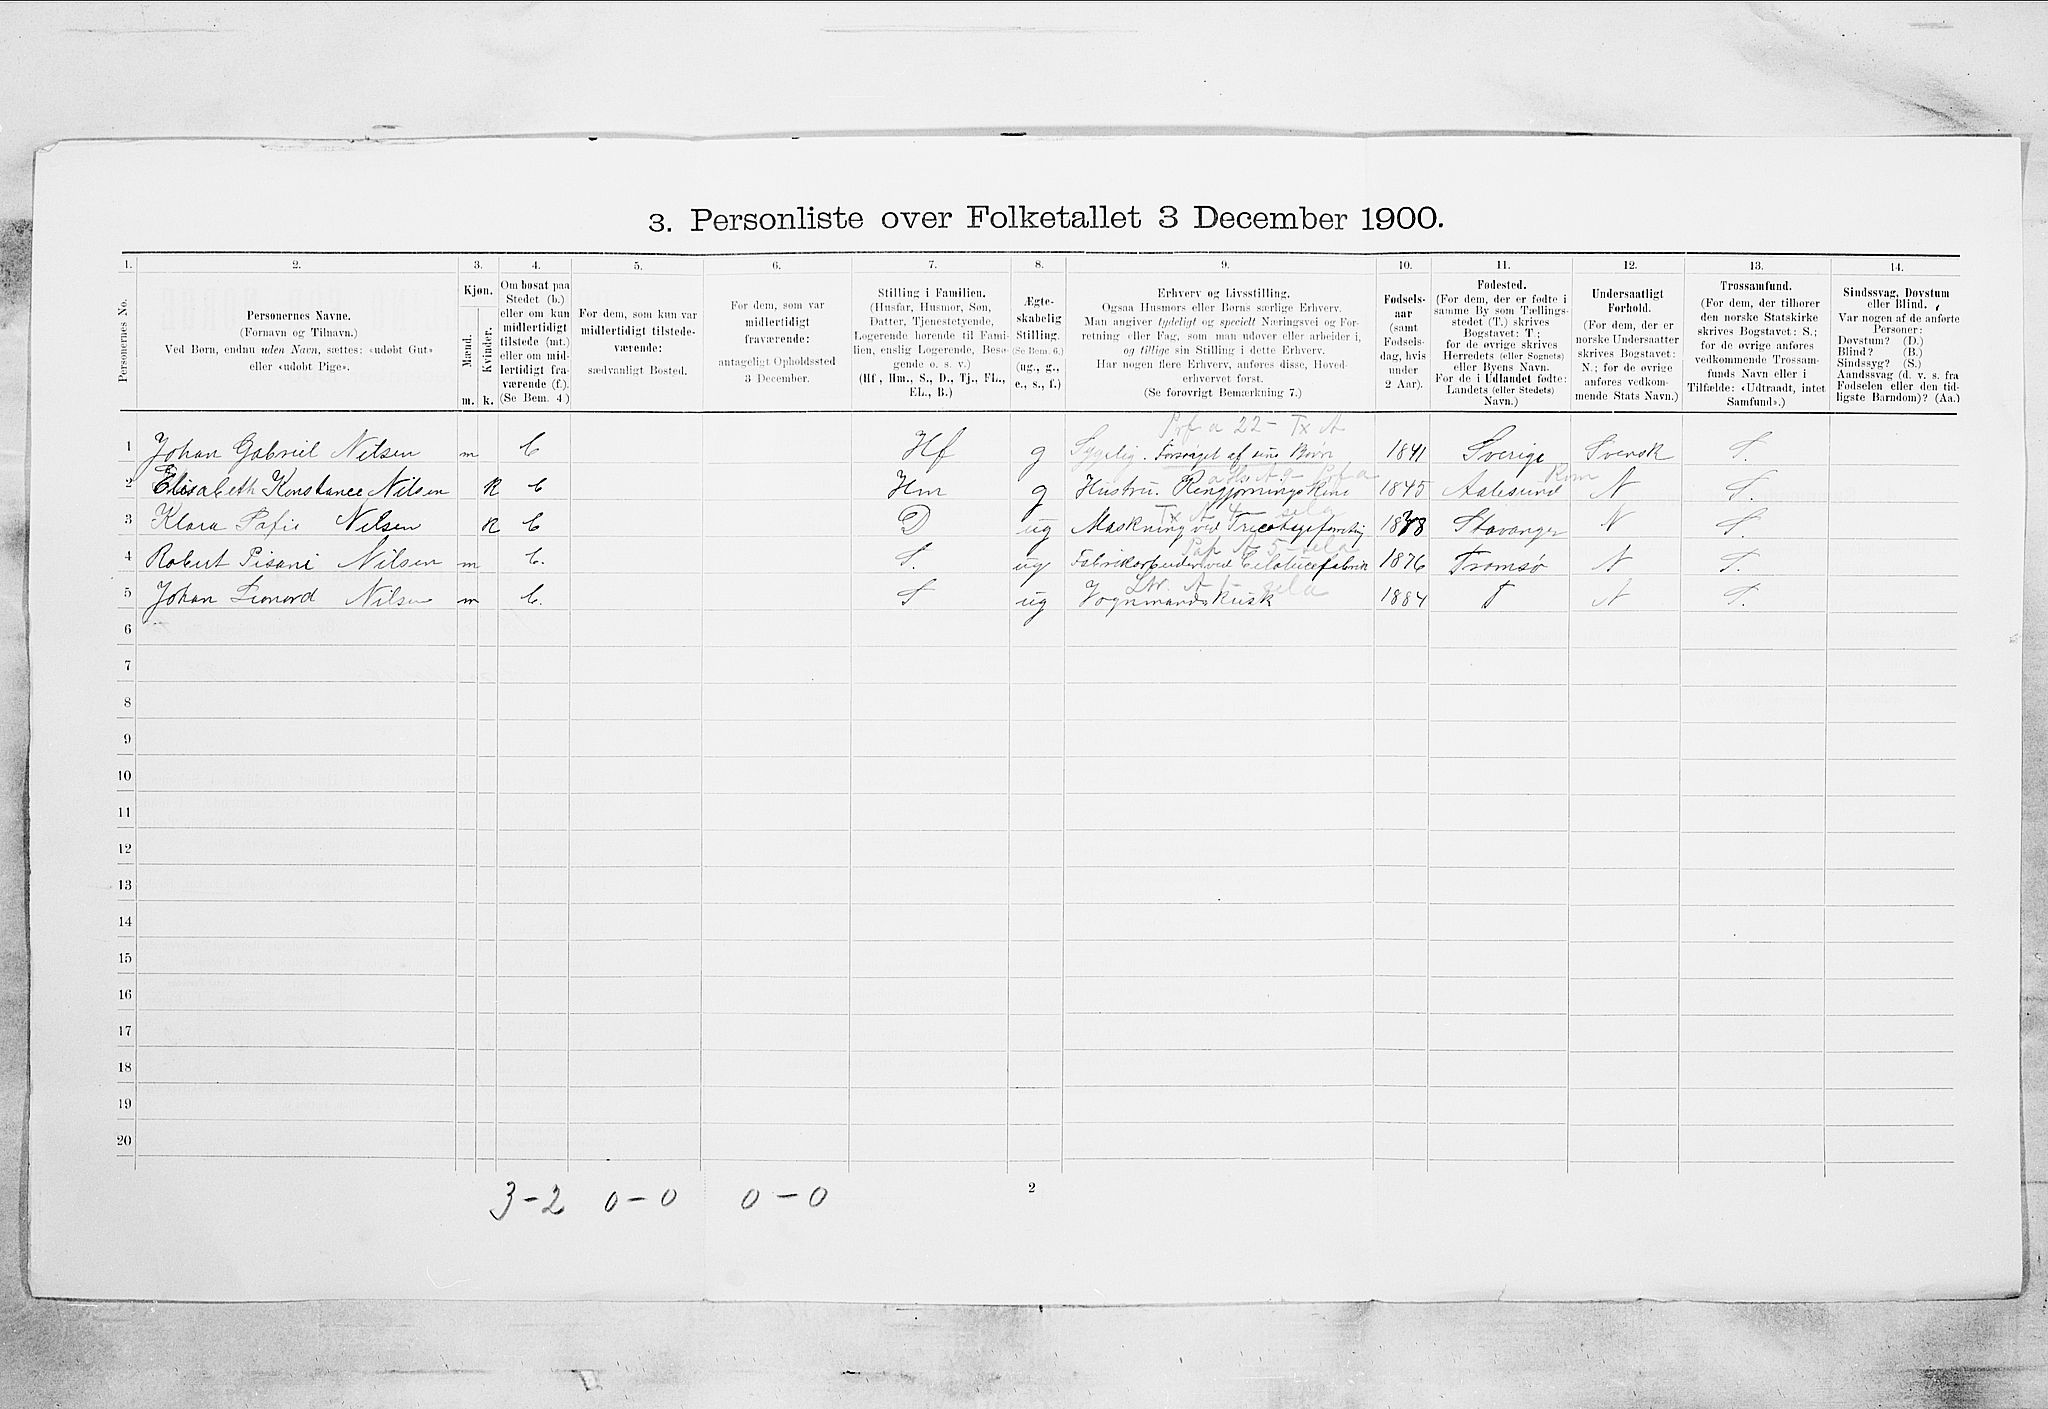 3. Personliste over Folketallet 3 December 1900.
1. 2. 3. 4. 5. 6. 7. 8. 9. 10. 11. 12. 13. 14.
Personernes No.
Personernes Navne.
(Fornavn og Tilnavn.)
Ved Børn, endnu uden Navn, sættes: «udøbt Gut»
eller «udøbt Pige».
Kjøn.
Mænd. Kvinder.
m. k.
Om bosat paa
Stedet (b.)
eller om kun
midlertidigt
tilstede (mt.)
eller om mid-
lertidigt fra-
værende (f.).
(Se Bem. 4.)
For dem, som kun var
midlertidigt tilstede-
værende:
sædvanligt Bosted.
For dem, som var
midlertidigt
fraværende:
antageligt Opholdssted
3 December.
Stilling i Familien.
(Husfar, Husmor, Søn,
Datter, Tjenestetyende,
Logerende hørende til Fami-
lien, enslig Logerende, Besø-
gende o. s. v.)
(Hf., Hm., S., D., Tj., FL.,
EL., B.)
Ægte-
skabelig
Stilling.
(Se Bem. 6.)
(ug., g.,
e., s., f.)
Erhverv og Livsstilling.
Ogsaa Husmors eller Børns særlige Erhverv.
Man angiver tydeligt og specielt Næringsvei og For-
retning eller Fag, som man udøver eller arbeider i,
og tillige sin Stilling i dette Erhverv.
Har nogen flere Erhverv, anføres disse, Hoved-
erhvervet først.
(Se forøvrigt Bemærkning 7.)
Fødsels-
aar
(samt
Fødsels-
dag, hvis
under
2 Aar).
Fødested.
(For dem, der er fødte i
samme By som Tællings-
stedet (T.) skrives
Bogstavet: T;
for de øvrige skrives
Herredets (eller Sognets)
eller Byens Navn.
For de i Udlandet fødte:
Landets (eller Stedets)
Navn.)
Undersaatligt
Forhold.
(For dem, der er
norske Undersaatter
skrives Bogstavet:
N.; for de øvrige
anføres vedkom-
mende Stats Navn.)
Trossamfund.
(For dem, der tilhører
den norske Statskirke
skrives Bogstavet: S.;
for de øvrige anføres
vedkommende Trossam-
funds Navn eller i
Tilfælde: «Udtraadt, intet
Samfund».)
Sindssvag, Døvstum
eller Blind.
Var nogen af de anførte
Personer:
Døvstum? (D.)
Blind? (B.)
Sindssyg? (S.)
Aandssvag (d. v. s. fra
Fødselen eller den tid-
ligste Barndom)? (Aa.)
Prf a 22 - Tx A
1 Johan Gabriel Nilsen m b Hf g Sygelig. Forsørget af sine Børn 1841 Sverige Svensk S.
2 Elisabeth Konstance Nilsen k b Hm g Hustru. Rengjørningskone 1845 Aalesund N S.
3 Klara Nilsen k b D ug Maskning ved 1878 Stavanger N S.
4 Robert Pisani Nilsen m b. S. ug Fabrikarbeider ved 1876 Tromsø N S.
5 Johan Leonord Nilsen m b. S ug Vognmandskusk 1884 T N S.
6
7
8
9
10
11
12
13
14
15
16
17
18
19
20
3-2 0-0 0-0
2